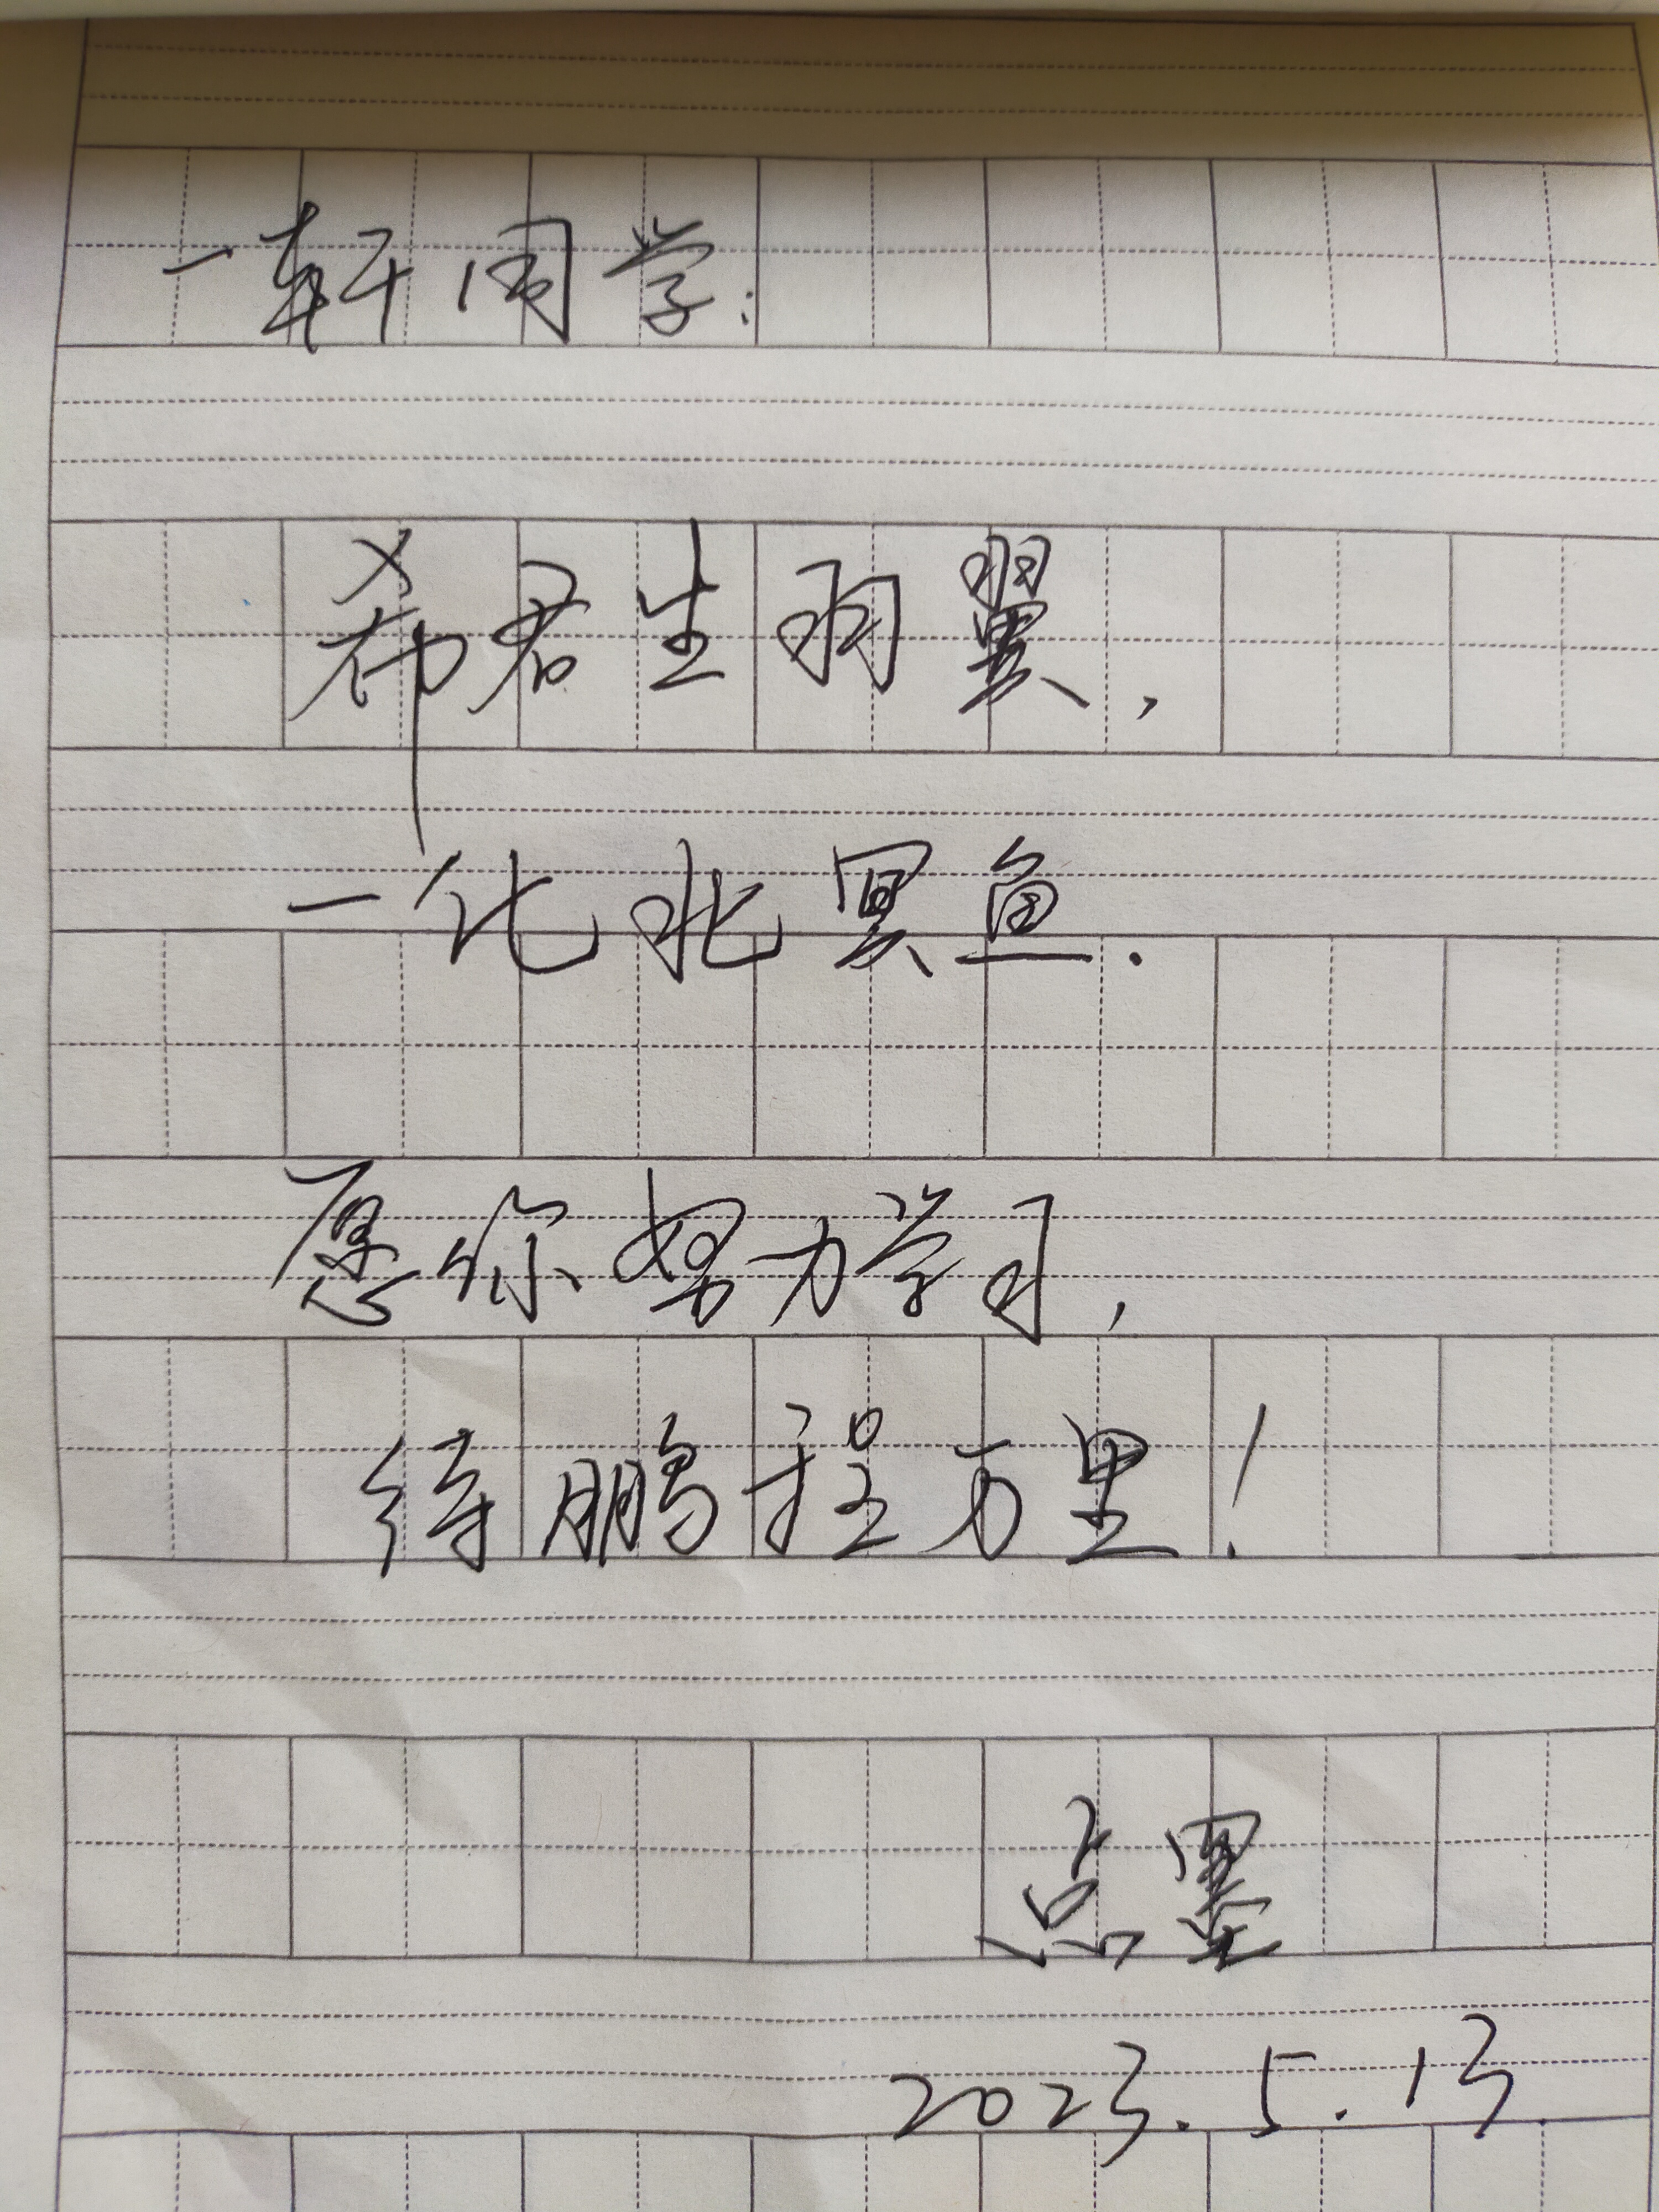 一轩同学：
希君生羽翼，
一化北冥鱼.
愿你努力学习，
待鹏程万里！
点墨
2023.5.13